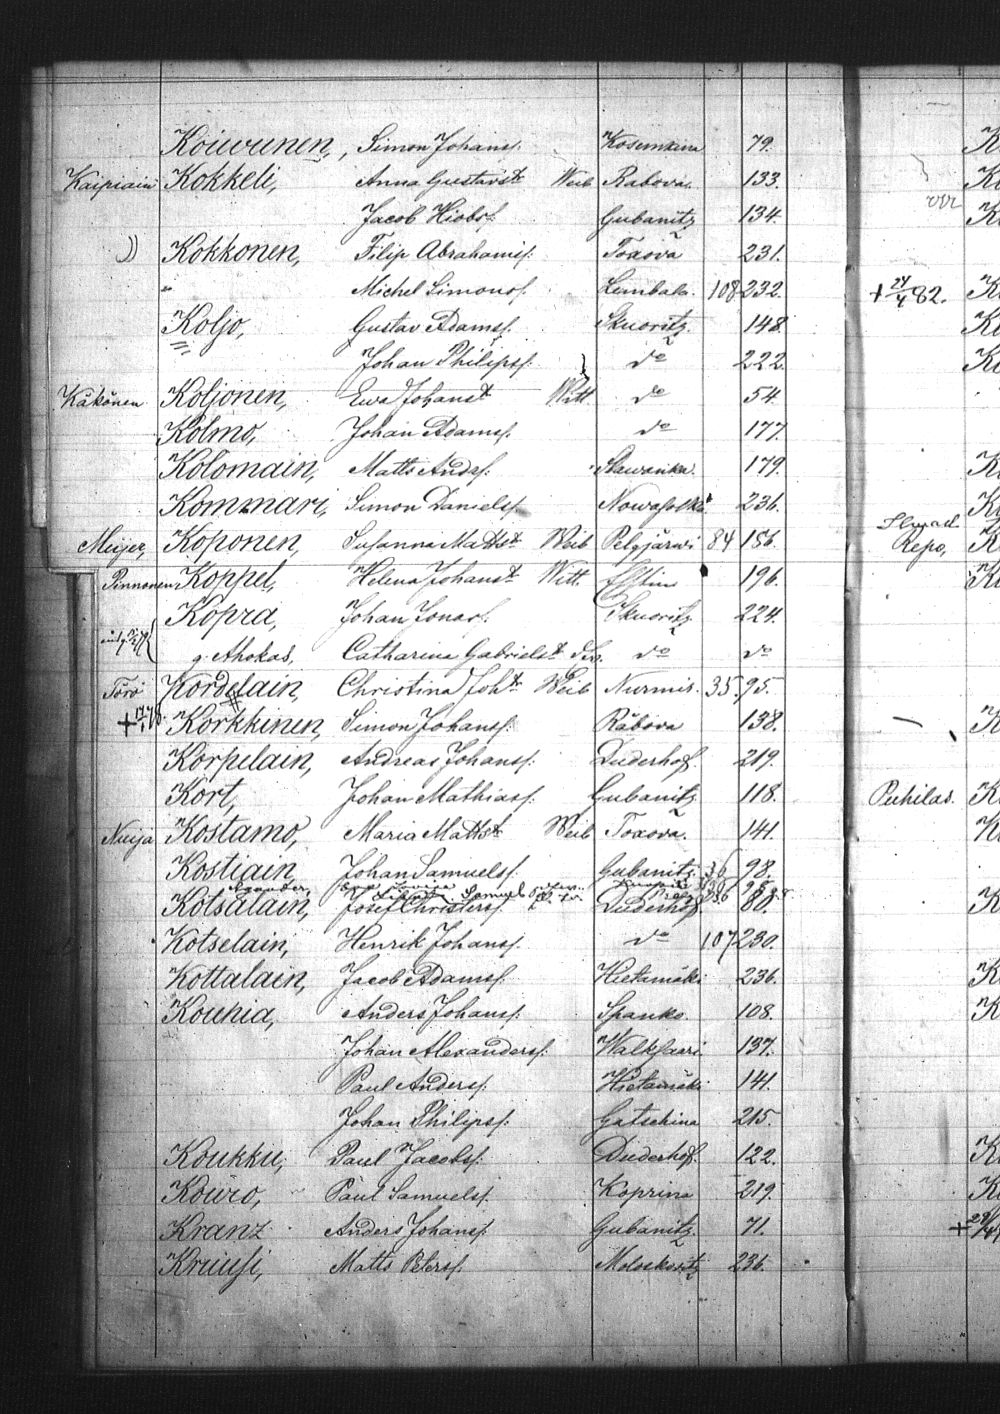 Koiwunen, Simon Johanss. Kosemkina 79.
Kaipiain Kokkeli, Anna Gustavsdr Weib Rabova. 133.
Jacob Hiobsf. Gubanitz 134.
Kokkonen, Filip Abrahamsf. Toxova 231.
" Michel Simonsf. Lembala. 108 232.
Koljo, Gustav Adamsf. Skuoritz. 148.
Johan Philipsf. do 222.
Käkönen Koljonen, Ewa Johansdr Witt. do 54.
Kolmo, Johan Adamsf. do 177.
Kolomain, Matts Andsf. Slawanka. 179.
Kommari, Simon Danielsf. 236.
Meijer, Koponen, Susanna Mattsdr Weib Pelgjärwi 84 156.
Pinnonen Koppel, Helena Johansdr Witt. 196.
Kopra, Johan Jonasf. Skuoritz 224.
g. Ahokas, Catharina Gabrielsdr do do
Törö Kordelain, Christina Johdr Weib Nurmis. 35. 95.
Korkkinen, Simon Johansf. Räbova 138.
Korpelain, Andreas Johansf. Duderhof. 219.
Kort, Johan Mathiasf. Gubanitz 118.
Nuija Kostamo, Maria Mattsdr Weib Toxova. 141.
Kostiain, Johan Samuelsf. Gubanitz 36 98.
Kotsalain, Josef Christersf. Duderhof 80.
Kotselain, Henrik Johansf. do 107 230.
Kottalain, Jacob Adamsf. Hietamäki 236.
Kouhia, Anders Johansf. Spanko. 108.
Johan Alexandersf. Walksaari. 137.
Paul Andersf. Hietamäki 141.
Johan Philipsf. Gatschina 215.
Koukku, Paul Jacobsf. Duderhof. 122.
Kouro, Paul Samuelsf. Koprina 219.
Kranz Anders Johansf. Gubanitz 71.
Kruusi, Matts Petersf. Moloskovitz 236.
Repo,
Puhilas.